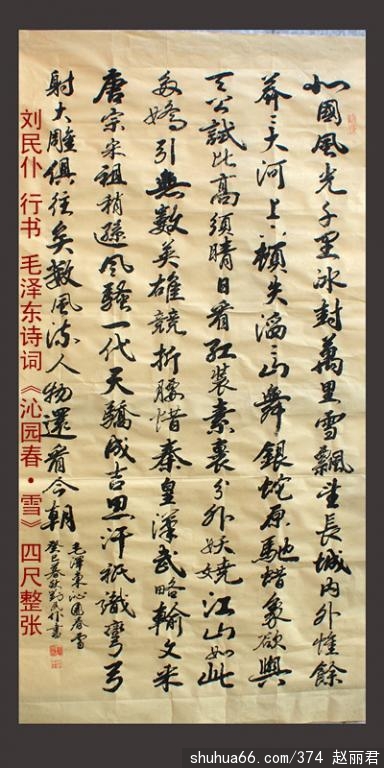 北國風光千里冰封萬里雪飄望長城内外惟餘
莽〻大河上下頓失滔〻山舞銀蛇原馳蜡象欲與
天公試比高須晴日看紅裝素裹分外妖嬈江山如此
多嬌引無數英雄競折腰惜秦皇漢武略輸文采
唐宗宋祖稍遜風騷一代天驕成吉思汗祇識彎弓
射大雕俱往矣數風流人物還看今朝
毛澤東沁園春雪
癸巳春 劉民仆書
刘民仆 行书 毛泽东诗词《沁园春·雪》四尺整张
shuhua66.com/374 赵丽君